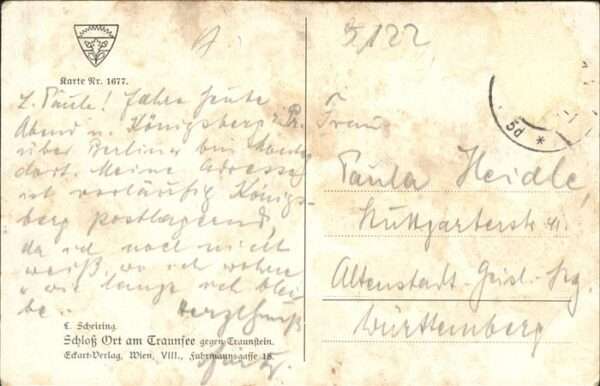 5/122
Karte Nr. 1677.
L. Paula! Fahre heute
Abend n. Königsberg i. Pr.
über Berlin
dort. Meine Adresse
ist vorläufig Königs-
berg postlagernd,
da ich noch nicht
weiß, wo ich wohne
u. wie lange ich blei
be.
L. Scheiring.
Schloß Ort am Traunsee gegen Traunstein.
Eckart-Verlag, Wien, VIII., Fuhrmannsgasse 18.
5d *
Frau
Paula Heidle,
Stuttgarterstr. 41.
Altenstadt-Geisl.-Stg.
Württemberg